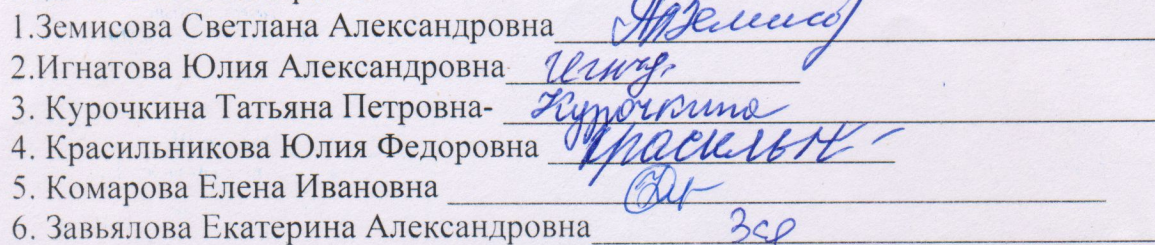 1.Земисова Светлана Александровна
2.Игнатова Юлия Александровна
3. Курочкина Татьяна Петровна- Курочкина
4. Красильникова Юлия Федоровна Красильн
5. Комарова Елена Ивановна
6. Завьялова Екатерина Александровна